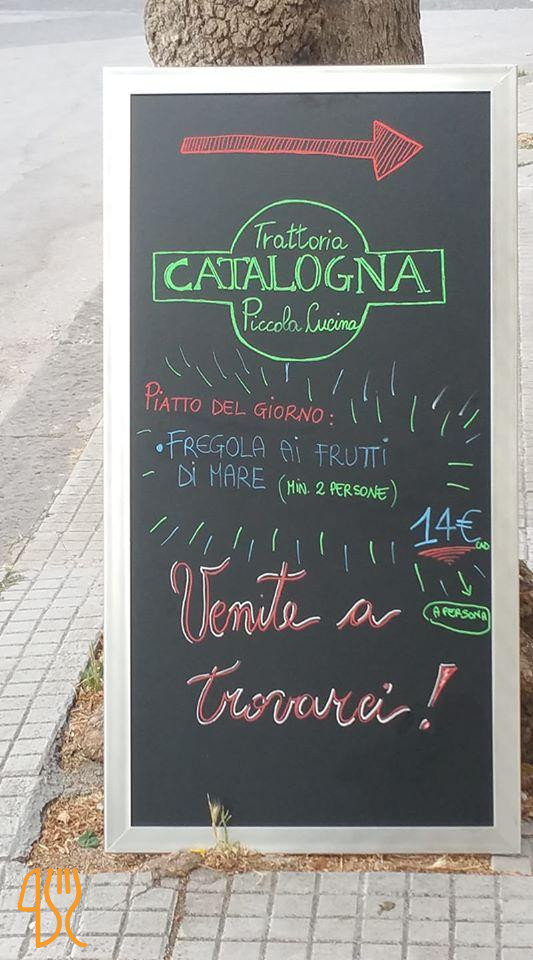 Trattoria
CATALOGNA
Piccola Cucina
PIATTO DEL GIORNO:
• FREGOLA AI FRUTTI
DI MARE (MIN. 2 PERSONE)
14€ CAD
A PERSONA
Venite a
trovarci!